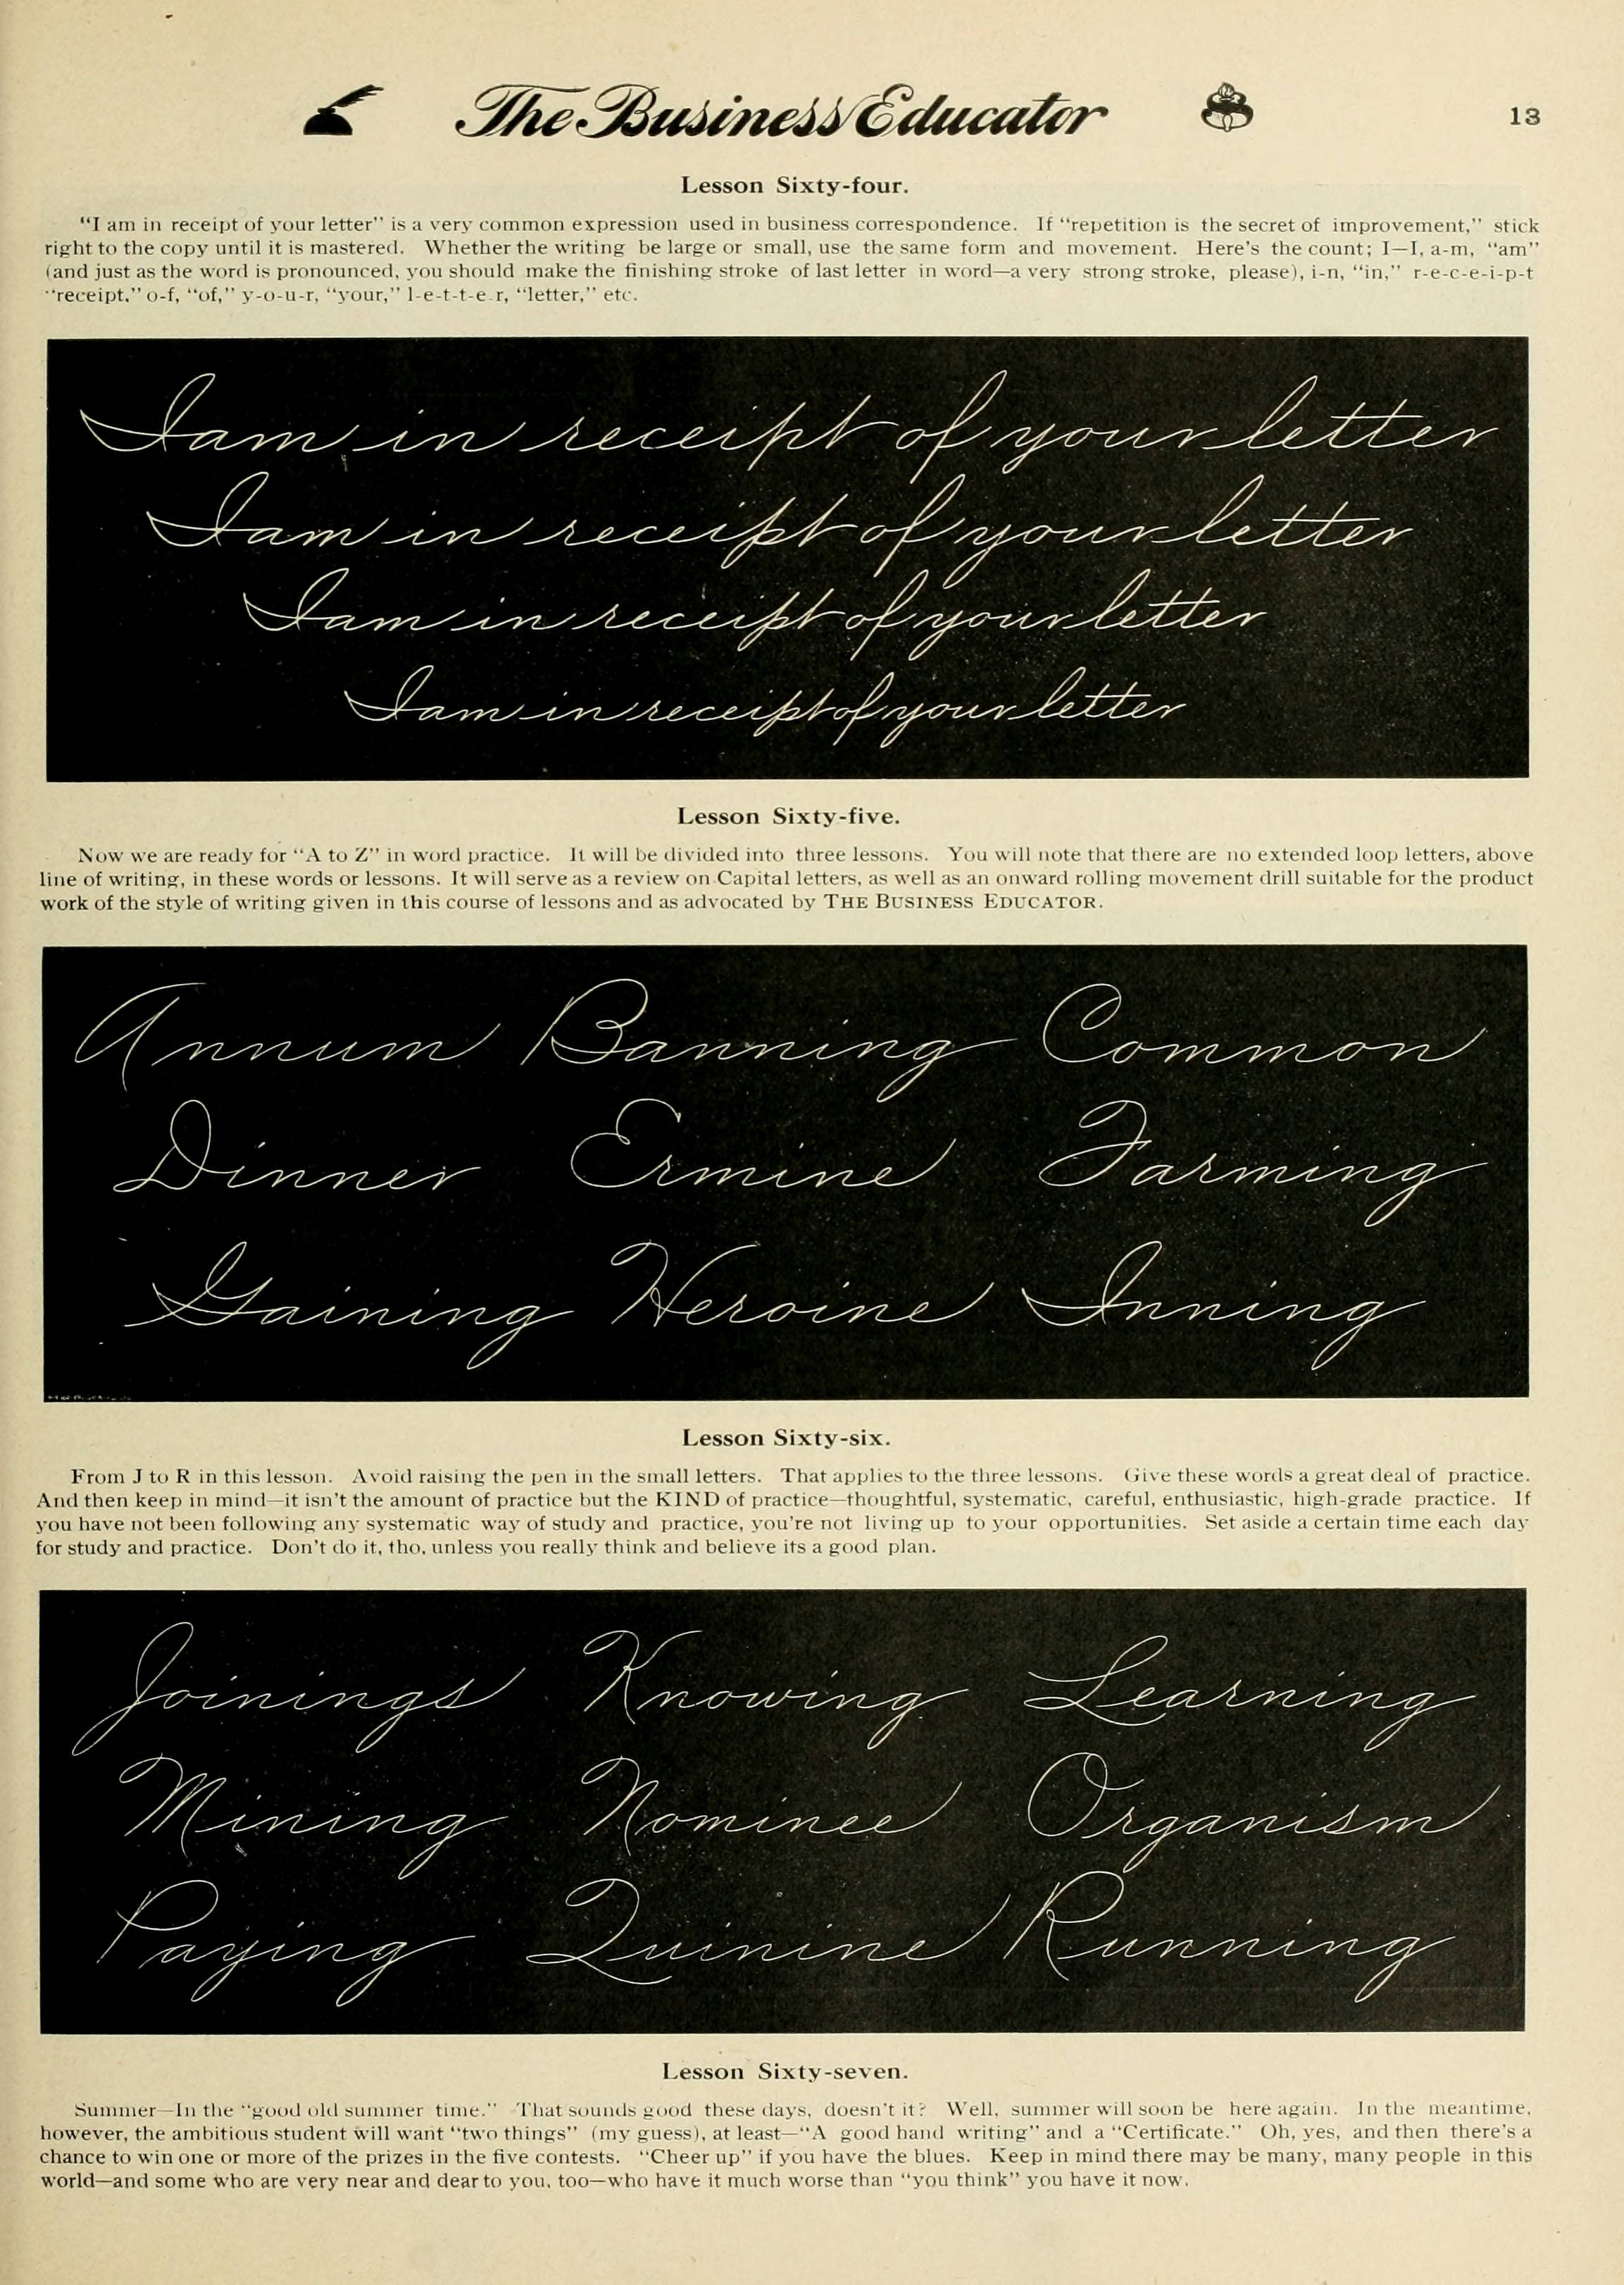 The Business Educator
13
Lesson Sixty-four.
"I am in receipt of your letter" is a very common expression used in business correspondence. If "repetition is the secret of improvement," stick
right to the copy until it is mastered. Whether the writing be large or small, use the same form and movement. Here's the count; I—I, a-m, "am"
(and just as the word is pronounced, you should make the finishing stroke of last letter in word—a very strong stroke, please), i-n, "in," r-e-c-e-i-p-t
"receipt," o-f, "of," y-o-u-r, "your," l-e-t-t-e-r, "letter," etc.
I am in receipt of your letter
I am in receipt of your letter
I am in receipt of your letter
I am in receipt of your letter
Lesson Sixty-five.
Now we are ready for "A to Z" in word practice. It will be divided into three lessons. You will note that there are no extended loop letters, above
line of writing, in these words or lessons. It will serve as a review on Capital letters, as well as an onward rolling movement drill suitable for the product
work of the style of writing given in this course of lessons and as advocated by THE BUSINESS EDUCATOR.
Annum Banning Common
Dinner Ermine Farming
Gaining Heroine Inning
Lesson Sixty-six.
From J to R in this lesson. Avoid raising the pen in the small letters. That applies to the three lessons. Give these words a great deal of practice.
And then keep in mind—it isn't the amount of practice but the KIND of practice—thoughtful, systematic, careful, enthusiastic, high-grade practice. If
you have not been following any systematic way of study and practice, you're not living up to your opportunities. Set aside a certain time each day
for study and practice. Don't do it, tho, unless you really think and believe its a good plan.
Joinings Knowing Learning
Mining Nominee Organism
Paying Quinine Running
Lesson Sixty-seven.
Summer—In the "good old summer time." That sounds good these days, doesn't it? Well, summer will soon be here again. In the meantime,
however, the ambitious student will want "two things" (my guess), at least—"A good hand writing" and a "Certificate." Oh, yes, and then there's a
chance to win one or more of the prizes in the five contests. "Cheer up" if you have the blues. Keep in mind there may be many, many people in this
world—and some who are very near and dear to you, too—who have it much worse than "you think" you have it now.